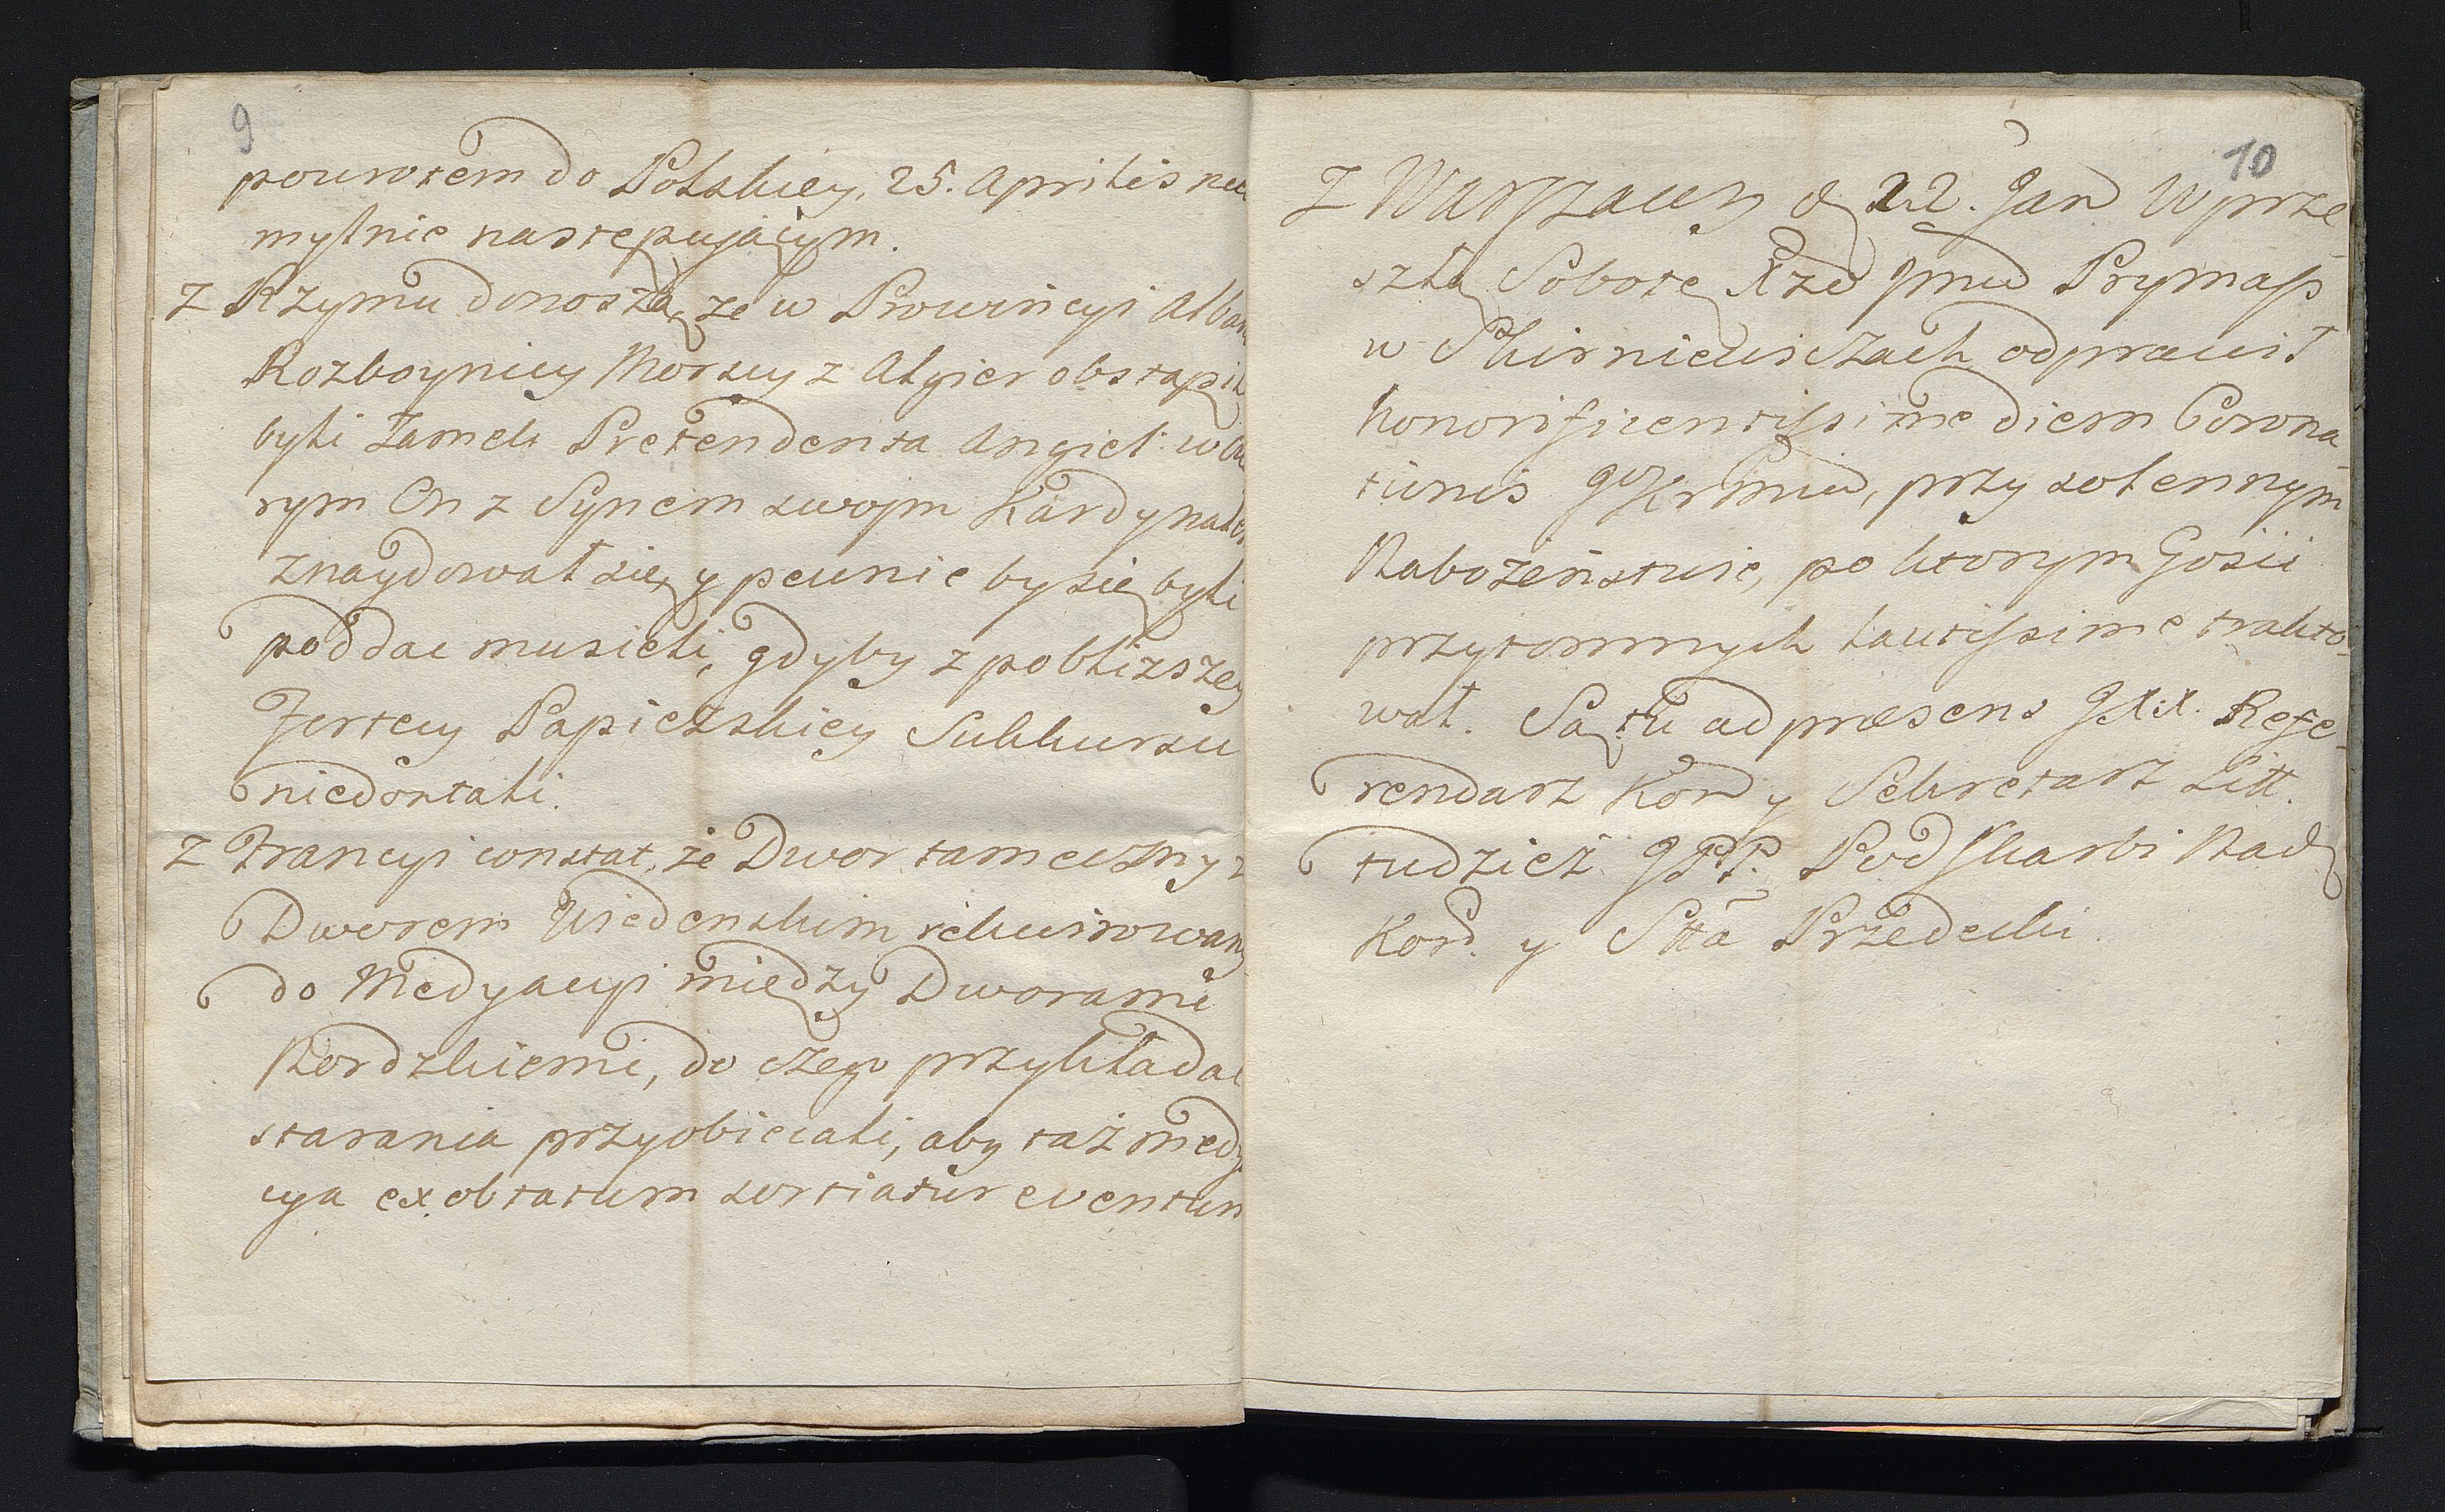 9
powrotem do Polskiey, 25. Aprilis nie
mylnie następuiącym.
Z Rzymu donoszą, że w Prowincyi Alban
Rozboynicy Morscy z Algier obstąpili
byli Zamek Pretendenta Angiel: w
rym On z Synem swojm Kardynałe
znaydował się, y pewnie by się byli
poddac musieli, gdyby z pobliższey
Fortecy Papiezskiey Sukkursu
niedostali.
Z Francyi constat, że Dwor tameczny z
Dworem Wiedenskim rekwirowany
do Medyacyi między Dworami
Nordzkiemi, do czego przykładac
starania przyobiecali, aby taż medy
cya exobtatum sortiatur eventum
10
Z Warszawy d 22. Jan W prze
szłą Sobotę Xzę Jmć Prymas
w Skierniewiczach odprawił
honorificentissime diem Corona
tionis JKrMci, przy solennym
Nabożeństwie, po ktorym Gosci
przytomnych lautissime trakto-
wał. Są tu ad præsens JXX. Refe-
rendarz Kor y Sekretarz Litt.
tudzież JPP. Podskarbi Nad
Kor. y Stta Przedecki.